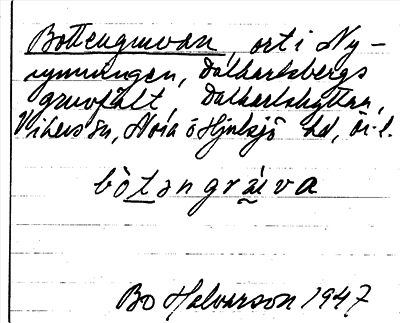 Bottengruvan, ort i Ny-
rymningen, Dalkarlsbergs
gruvfält, Dalkarlshyttan,
Vikers sn, Nora o Hjulsjö hd, Ör. l.
bòtəngrɯ̀va
Bo Halvarson 1947